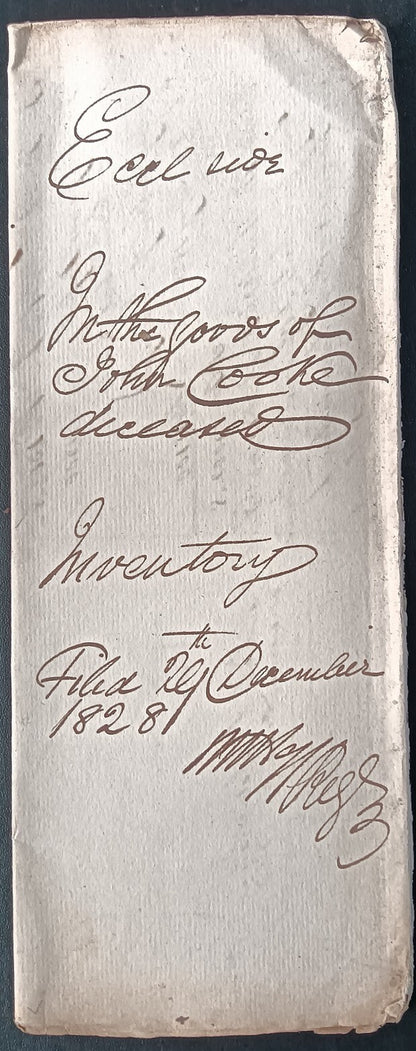 Eccl side
In the goods of
John Cooke
deceased
Inventory
Filed 29th December
1828
Regr